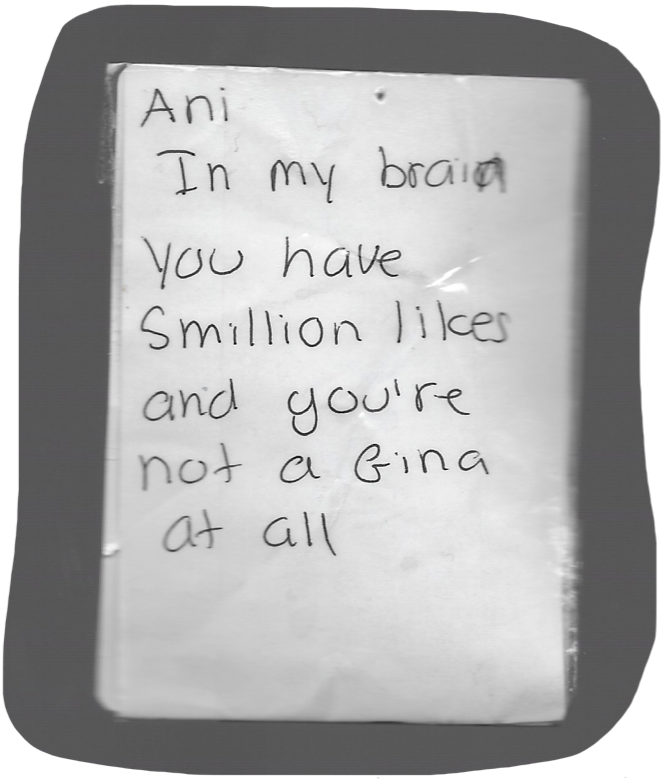 Ani
In my brain
you have
5million likes
and you're
not a Gina
at all